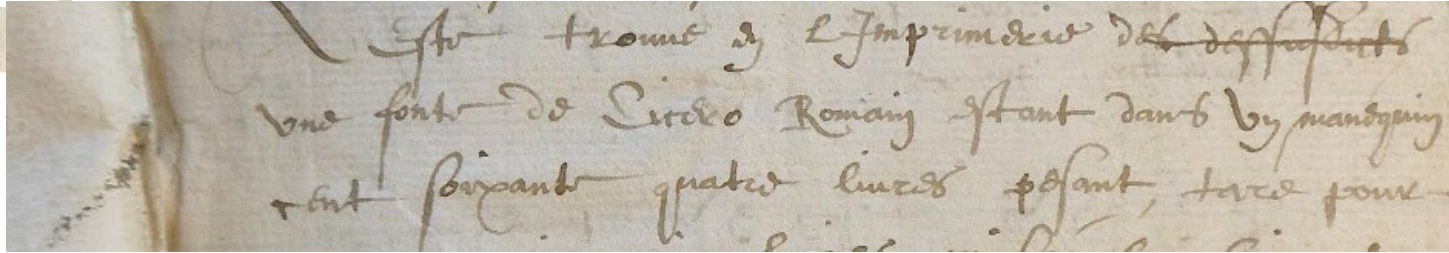 Esté trouvé en l'Imprimerie des dessusdicts
vne fonte de Cicero Romain estant dans vn manequin
cent soixante quatre liures pesant, tare pour